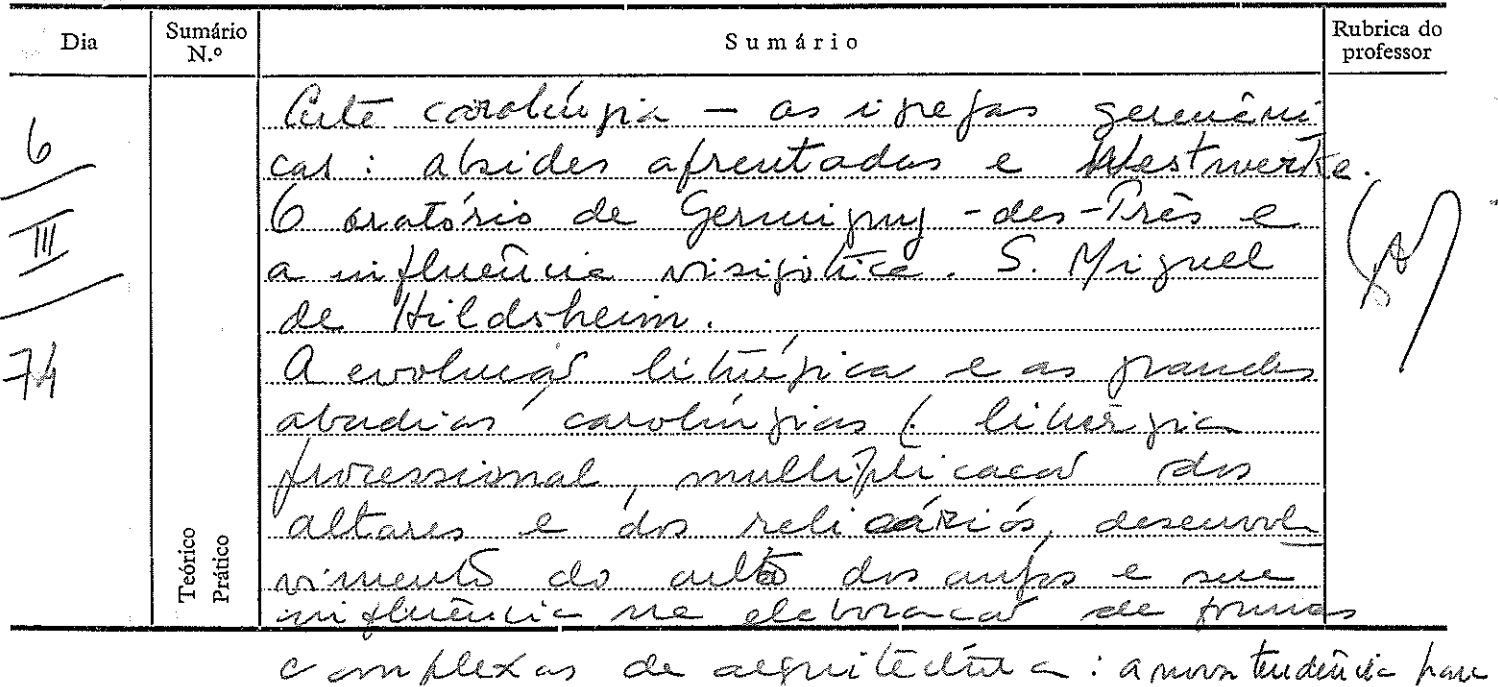 Dia
Sumário N.º
Sumário
Rubrica do professor
6
III
74
Teórico
Prático
Arte carolíngia — as igrejas germâni
cas: absides afrentadas e Westwerke.
O oratório de Germigny-des-Près e
a influência visigótica. S. Miguel
de Hildsheim.
A evolução litúrgica e as grandes
abadias carolíngias (liturgia
processional, multiplicação dos
altares e dos relicários, desenvol
vimento do culto dos anjos e sua
influência na elaboração de formas
complexas de arquitectura: a nova tendência para